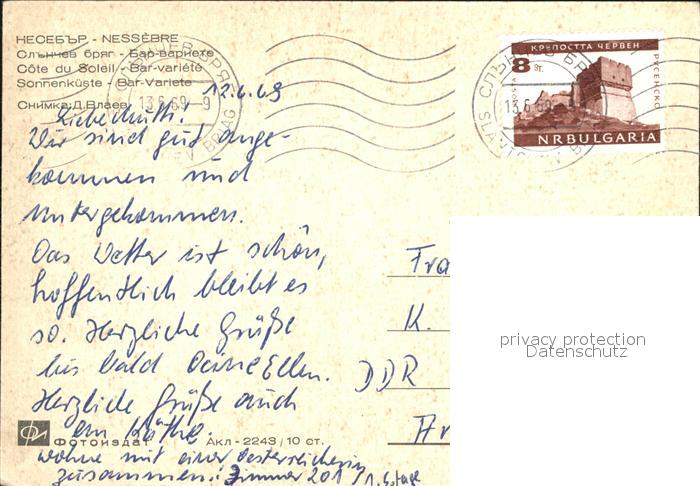 НЕСЕБЪР - NESSÈBRE
Слънчев бряг - Бар-вариете
Côte du Soleil - Bar-variété
Sonnenküste - Bar-Variete
Снимка: Д. Влаев
СЛЪНЧЕВ БРЯГ
13.6.69-9
КРЕПОСТТА ЧЕРВЕН
8 ст.
ПОЩА
РУСЕНСКО
NRBULGARIA
СЛЪНЧЕВ БРЯГ
13.6.69
12.6.69
Liebe Mutti!
Wir sind gut ange-
kommen und
untergekommen.
Das Wetter ist schön,
hoffentlich bleibt es
so. Herzliche Grüße
bis bald Deine Ellen.
Herzliche Grüße auch
an Käthe.
wohne mit einer Oesterreicherin
zusammen! Zimmer 201/1. Etage
Fra
K.
DDR
privacy protection
Datenschutz
ФИ Фотоиздат Акл - 2243/10 ст.